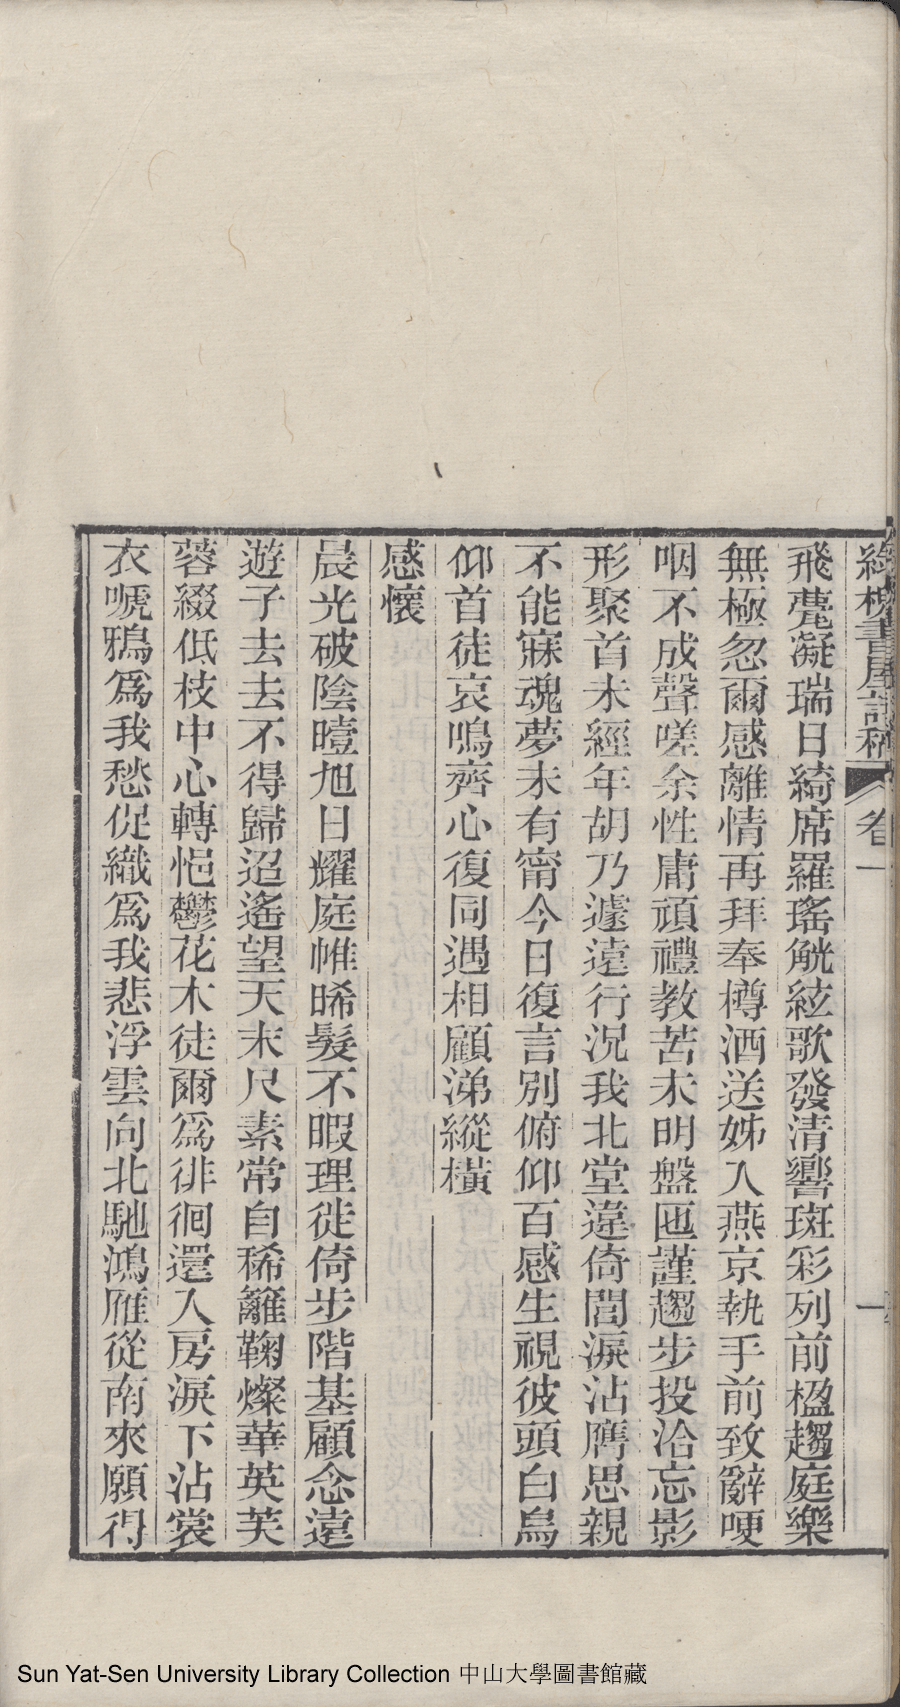 綠槐書屋詩稿 卷一 一
飛甍凝瑞日綺席羅瑤觥絃歌發清響斑彩列前楹趨庭樂
無極忽爾感離情再拜奉樽酒送姊入燕京執手前致辭哽
咽不成聲嗟余性庸頑禮教苦未明盤匜謹趨步投洽忘影
形聚首未經年胡乃遽遠行況我北堂違倚閭淚沾膺思親
不能寐魂夢未有甯今日復言別俯仰百感生視彼頭白烏
仰首徒哀鳴齊心復同遇相顧涕縱橫
感懷
晨光破陰曀旭日耀庭帷晞髮不暇理徙倚步階基顧念遠
遊子去去不得歸迢遙望天末尺素常自稀籬鞠燦華英芙
蓉綴低枝中心轉悒鬱花木徒爾為徘徊還入房淚下沾裳
衣嗁鴉為我愁促織為我悲浮雲向北馳鴻雁從南來願得
Sun Yat-Sen University Library Collection 中山大學圖書館藏